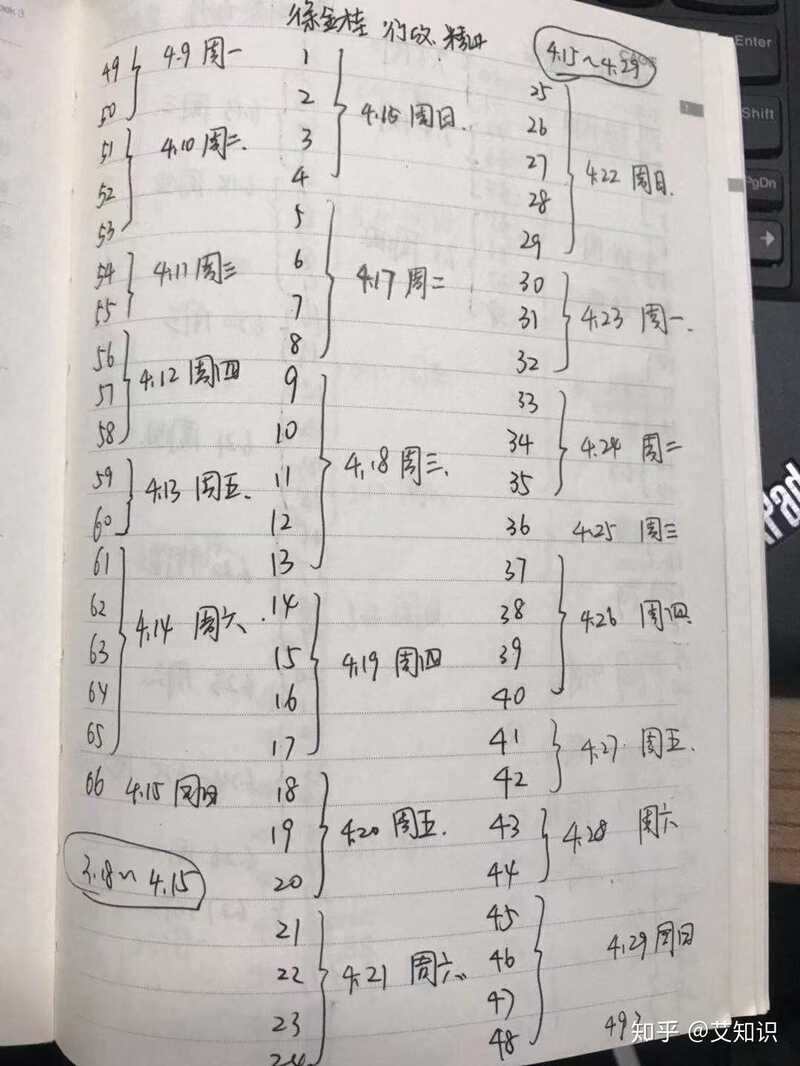 徐金桂 行政 精讲
4.15~4.29
49
50
4.9 周一
51
52
53
4.10 周二
54
55
4.11 周三
56
57
58
4.12 周四
59
60
4.13 周五
61
62
63
64
65
4.14 周六
66 4.15 周日
3.18~4.15
1
2
3
4
4.15 周日
5
6
7
8
4.17 周二
9
10
11
12
13
4.18 周三
14
15
16
17
4.19 周四
18
19
20
4.20 周五
21
22
23
24
4.21 周六
25
26
27
28
29
4.22 周日
30
31
32
4.23 周一
33
34
35
4.24 周二
36 4.25 周三
37
38
39
40
4.26 周四
41
42
4.27 周五
43
44
4.28 周六
45
46
47
48
4.29 周日
49?
Enter
Shift
PgDn
Pad
知乎 @艾知识